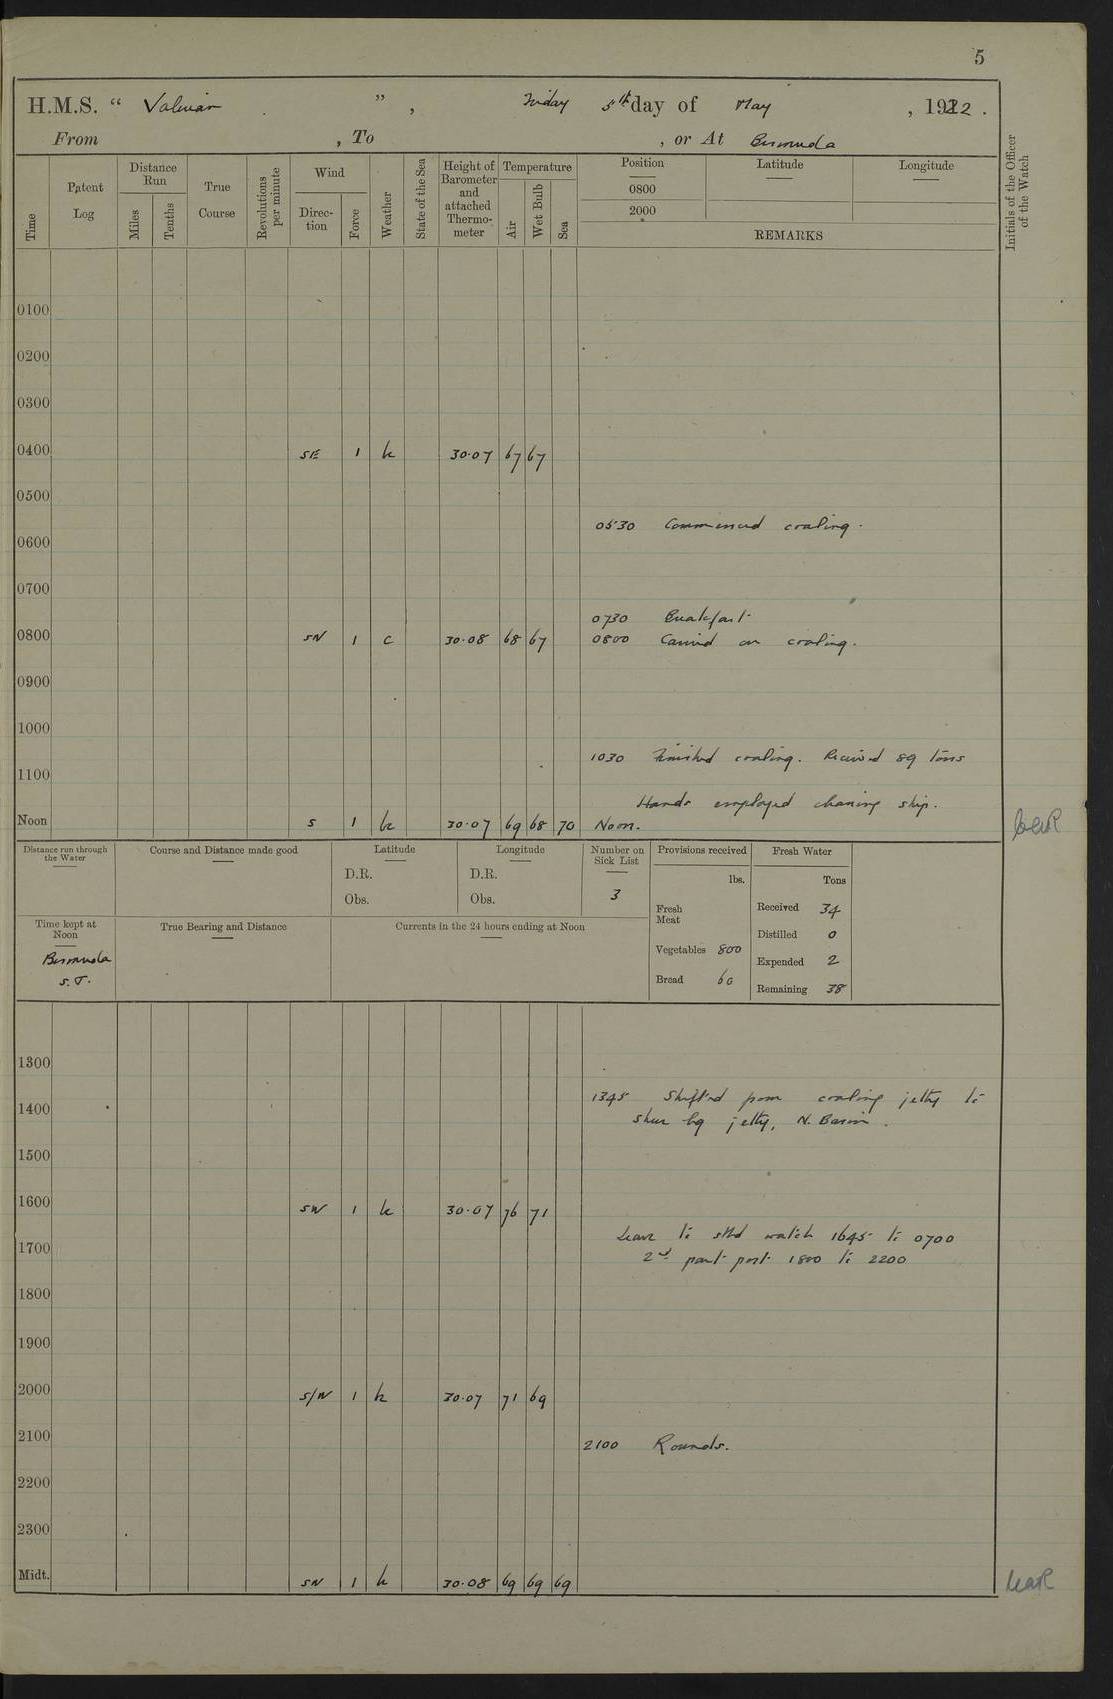 5
H.M.S. “ Valerian ” , Friday 5th day of May , 1922 .
From , To , or At Bermuda
Time
Patent Log
Distance Run
Miles
Tenths
True Course
Revolutions per minute
Wind
Direc-tion
Force
Weather
State of the Sea
Height of Barometer and attached Thermo-meter
Temperature
Air
Wet Bulb
Sea
Position
Latitude
Longitude
0800
2000
REMARKS
Initials of the Officer of the Watch
0100
0200
0300
0400 SE 1 bc 30·07 67 67
0500
0530 Commenced coaling.
0600
0700
0730 Breakfast
0800 SW 1 c 30·08 68 67 0800 Carried on coaling.
0900
1000
1030 Finished coaling. Received 89 tons
1100
Hands employed cleaning ship.
Noon S 1 bc 30·07 69 68 70 Noon.
Distance run through the Water
Course and Distance made good
Latitude
D.R.
Obs.
Longitude
D.R.
Obs.
Number on Sick List
3
Provisions received
lbs.
Fresh Meat
Vegetables 800
Bread 60
Fresh Water
Tons
Received 34
Distilled 0
Expended 2
Remaining 38
Time kept at Noon
Bermuda S.T.
True Bearing and Distance
Currents in the 24 hours ending at Noon
1300
1345 Shifted from coaling jetty to
1400
sheer leg jetty, N. Basin.
1500
1600 SW 1 bc 30·07 76 71
Leave to stbd watch 1645 to 0700
1700
2nd part port 1800 to 2200
1800
1900
2000 S/W 1 bc 30·07 71 69
2100 2100 Rounds.
2200
2300
Midt. SW 1 bc 30·08 69 69 69